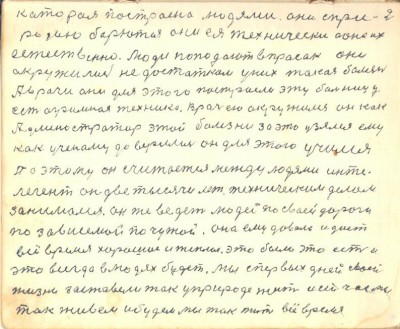 которая построена людями. они с при- 2
родою борются они ея технически гонят
естественно. Люди попадают впросак они
окружились недостатком у них такая болезнь
А врачи они для этого построили эту больницу
есть огромная техника. Врачею окружился он как
Администратор этой болезни за это узялся ему
как ученому доверился он для этого учился
Поэтому он считается между людями инте-
легент он две тысячи лет техническим делом
занимался. он же ведет людей по своей дороги
по зависемой по чужой. она ему довала и дает
всё время хорошое и теплое. это было это есть и
это всегда в людях будет. мы с первых дней своей
жизни заставели так у природе жить и ей
так живем и будем мы так жить всё время